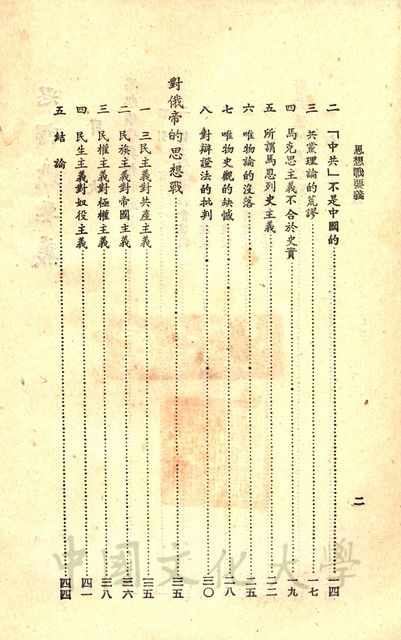 思想戰要義
二 「中共」不是中國的 一四
三 共黨理論的荒謬 一七
四 馬克思主義不合於史實 一九
五 所謂馬恩列史主義 二二
六 唯物論的沒落 二五
七 唯物史觀的缺憾 二八
八 對辯證法的批判 三〇
對俄帝的思想戰 三五
一 三民主義對共產主義 三五
二 民族主義對帝國主義 三六
三 民權主義對極權主義 三八
四 民生主義對奴役主義 四一
五 結論 四四
二
中國文化大學